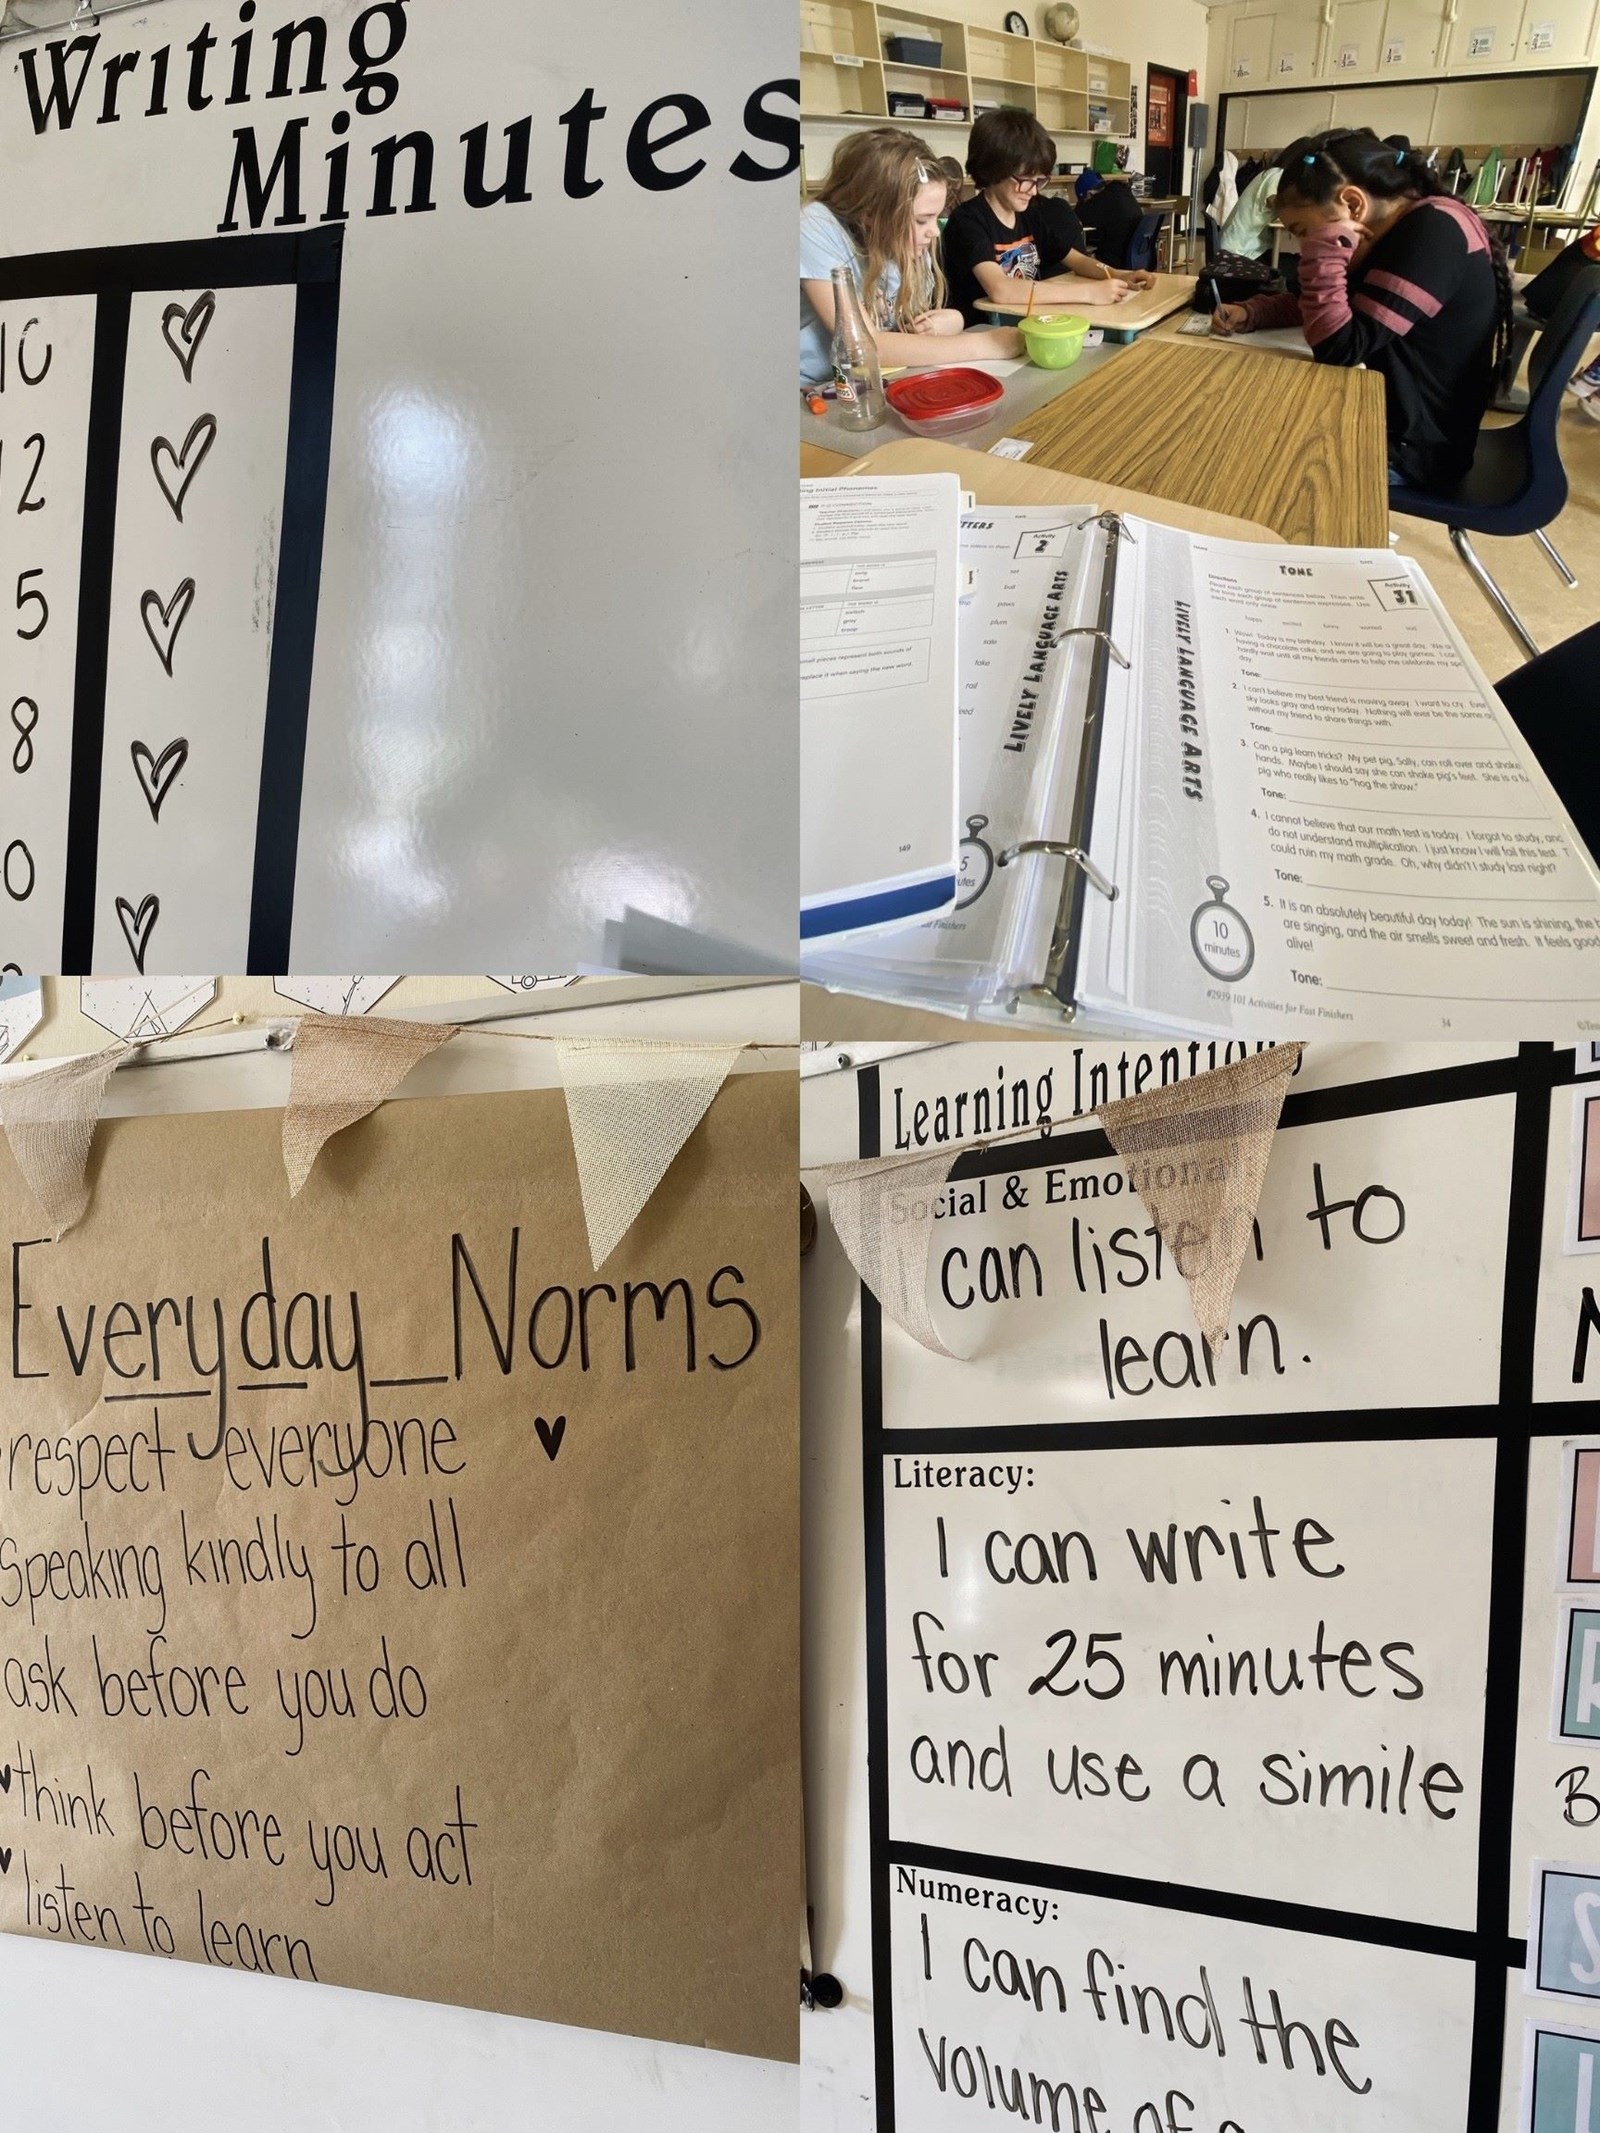 Writing
Minutes
10
12
5
8
0
LIVELY LANGUAGE ARTS
Activity
2
plum
take
rail
149
LIVELY LANGUAGE ARTS
TONE
Activity
31
Directions
Read each group of sentences below. Then write
the tone each group of sentences expresses. Use
each word only once.
happy excited funny worried sad
1. Wow! Today is my birthday. I know it will be a great day. We
having a chocolate cake, and we are going to play games. I
hardly wait until all my friends arrive to help me celebrate my
day.
Tone:
2. I can't believe my best friend is moving away. I want to cry.
sky looks gray and rainy today. Nothing will ever be the same
without my friend to share things with.
Tone:
3. Can a pig learn tricks? My pet pig, Sally, can roll over and shake
hands. Maybe I should say she can shake pig's feet. She is a
pig who really likes to "hog the show."
Tone:
4. I cannot believe that our math test is today. I forgot to study, and
do not understand multiplication. I just know I will fail this test. T
could ruin my math grade. Oh, why didn't I study last night?
Tone:
5. It is an absolutely beautiful day today! The sun is shining, the b
are singing, and the air smells sweet and fresh. It feels good
alive!
Tone:
10
minutes
#2939 101 Activities for Fast Finishers
34
Everyday Norms
respect everyone
Speaking kindly to all
ask before you do
think before you act
listen to learn
Learning Intentions
Social & Emotional
can listen to
learn.
Literacy:
I can write
for 25 minutes
and use a simile
Numeracy:
I can find the
volume of a
B